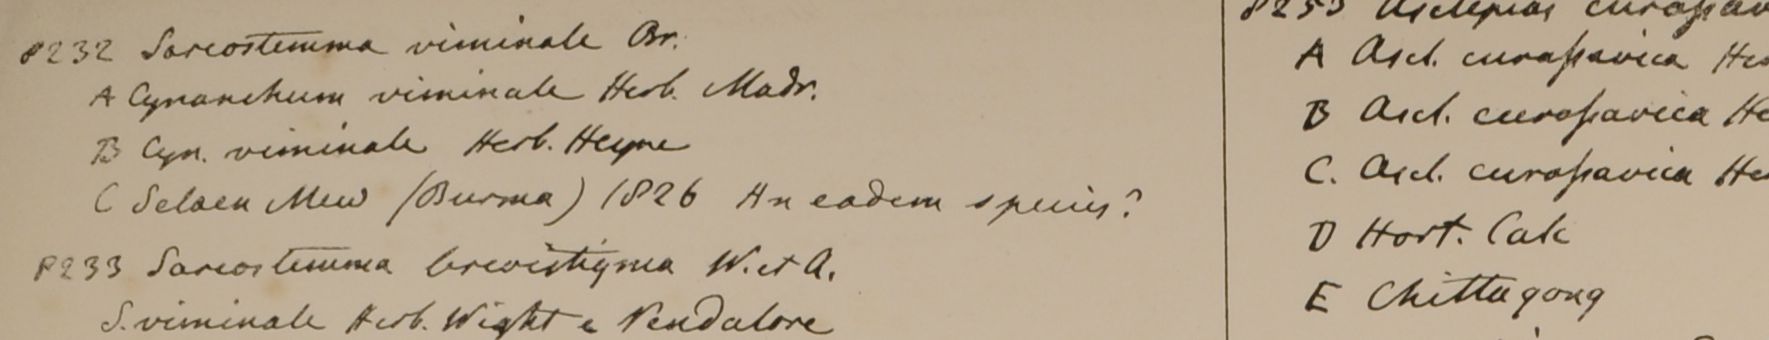 8232 Sarcostemma viminale Br.
A Cynanchum viminale Herb. Madr.
B Cyn. viminale Herb. Heyne
C Selaen Mew (Burma) 1826 An eadem species?
8233 Sarcostemma brevistigma W. et A.
S. viminale Herb. Wight e Vendalore
8253 Asclepias curassav
A Ascl. curassavica He
B Ascl. curassavica He
C. Ascl. curassavica He
D Hort. Calc
E Chittagong